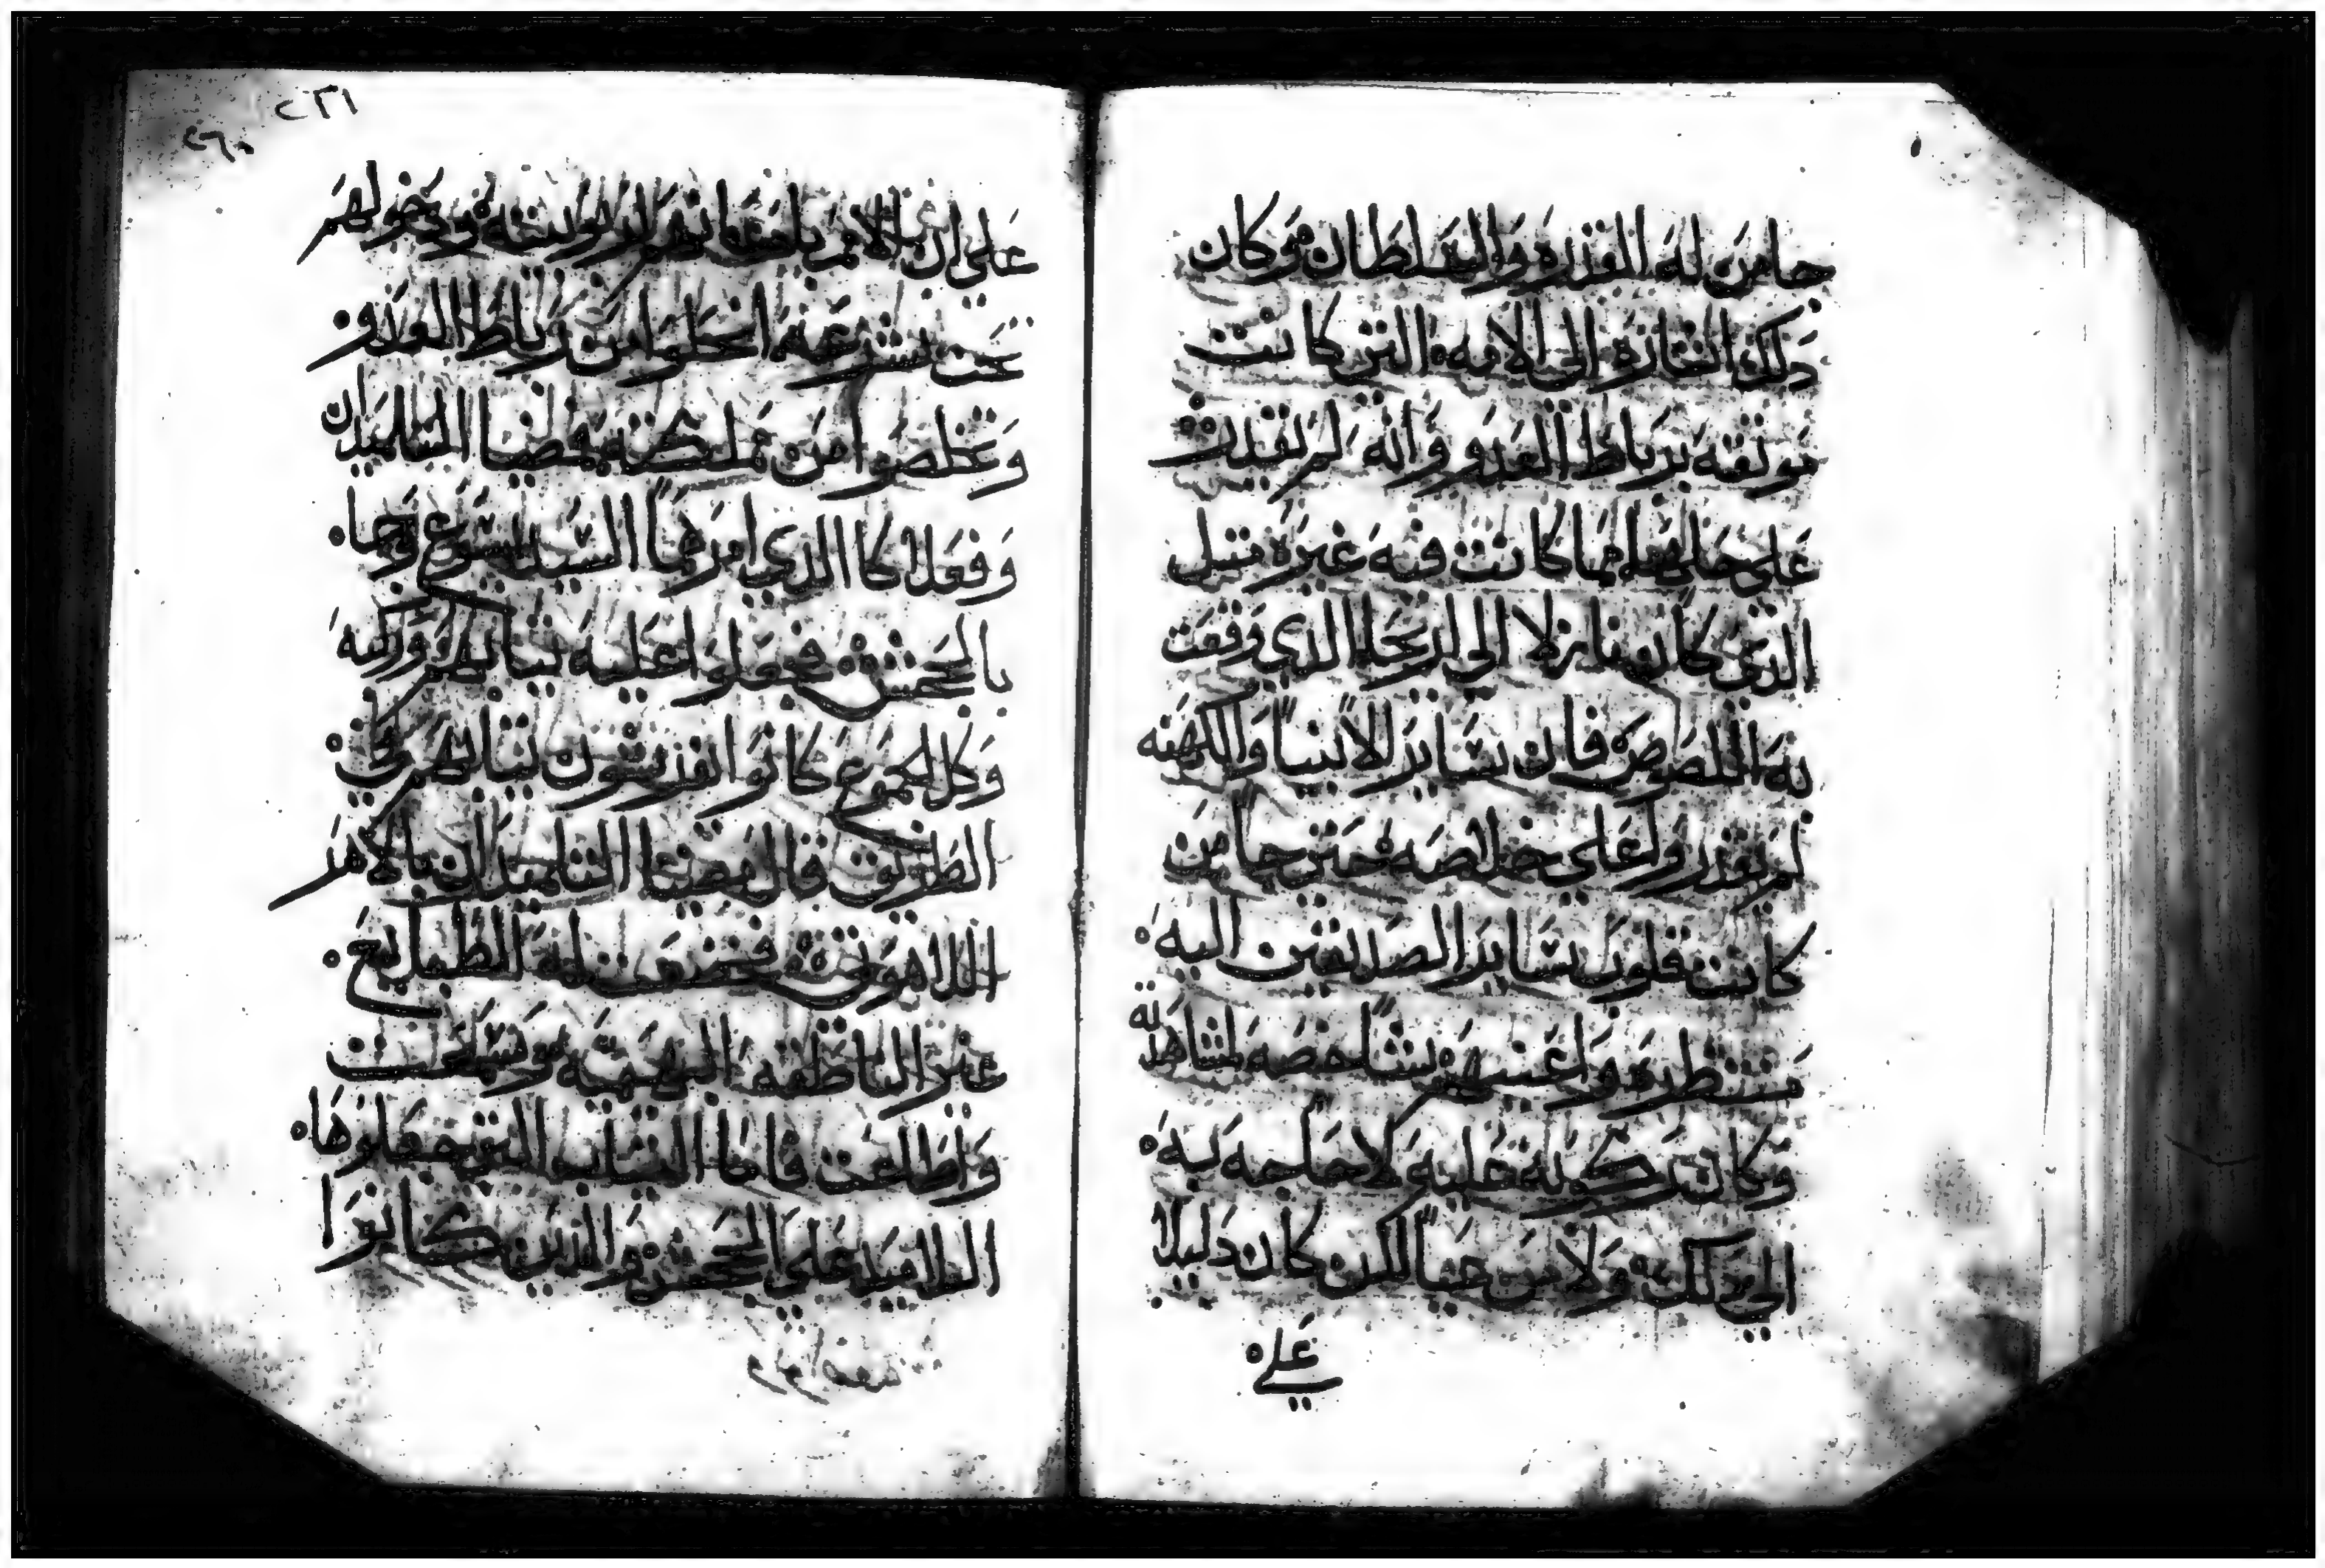 جا من له القدره والسلطان وكان
ذلك اشاره الى الامه التى كانت
موثقه برباط العدو وانه لم يقدر
على حلها مما كانت فيه غيره مثل
الذى كان نازلا الى اريحا الذي وقعت
به اللصوص فان ساير الانبيا والكهنه
لم يقدروا على خلاصه حتى جا من
كانت قلوب ساير الصديقين اليه
منتظره واعينهم شاخصه لمشاهدته
وكان ركوبه عليه لا حاجه به
الى ذلك ولا من حيا لكن كان دليلا
على
٢٣١
٢٦٠
على ان الامم باضعانهم لربوبيته ودخولهم
تحت شرعيته انحلوا من رباط العدو
وتخلصوا من مملكته فمضيا التلميذان
وفعلا كالذي امرهما السيد يسوع وجا
بالجحش فجعلوا عليه ثيابهم وركبه
وكل الجموع كانوا يفرشون ثيابهم في
الطريق قال فمضيا التلميذان بالامر
اللاهوتى فخضعت له الطبايع
غير الناطقه البهيميه وسمعت
واطاعت فاما الثياب التى جعلوها
التلاميذ على الجحش والذين كانوا